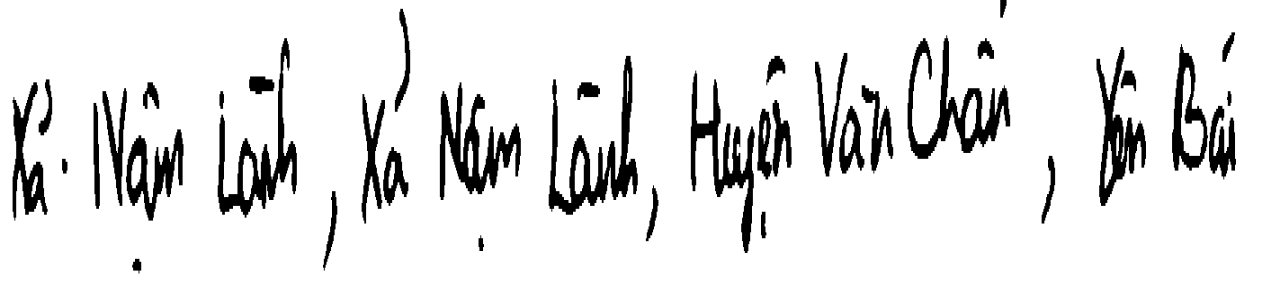 Xã Nậm Lành, Xã Nậm Lành, Huyện Văn Chấn, Yên Bái